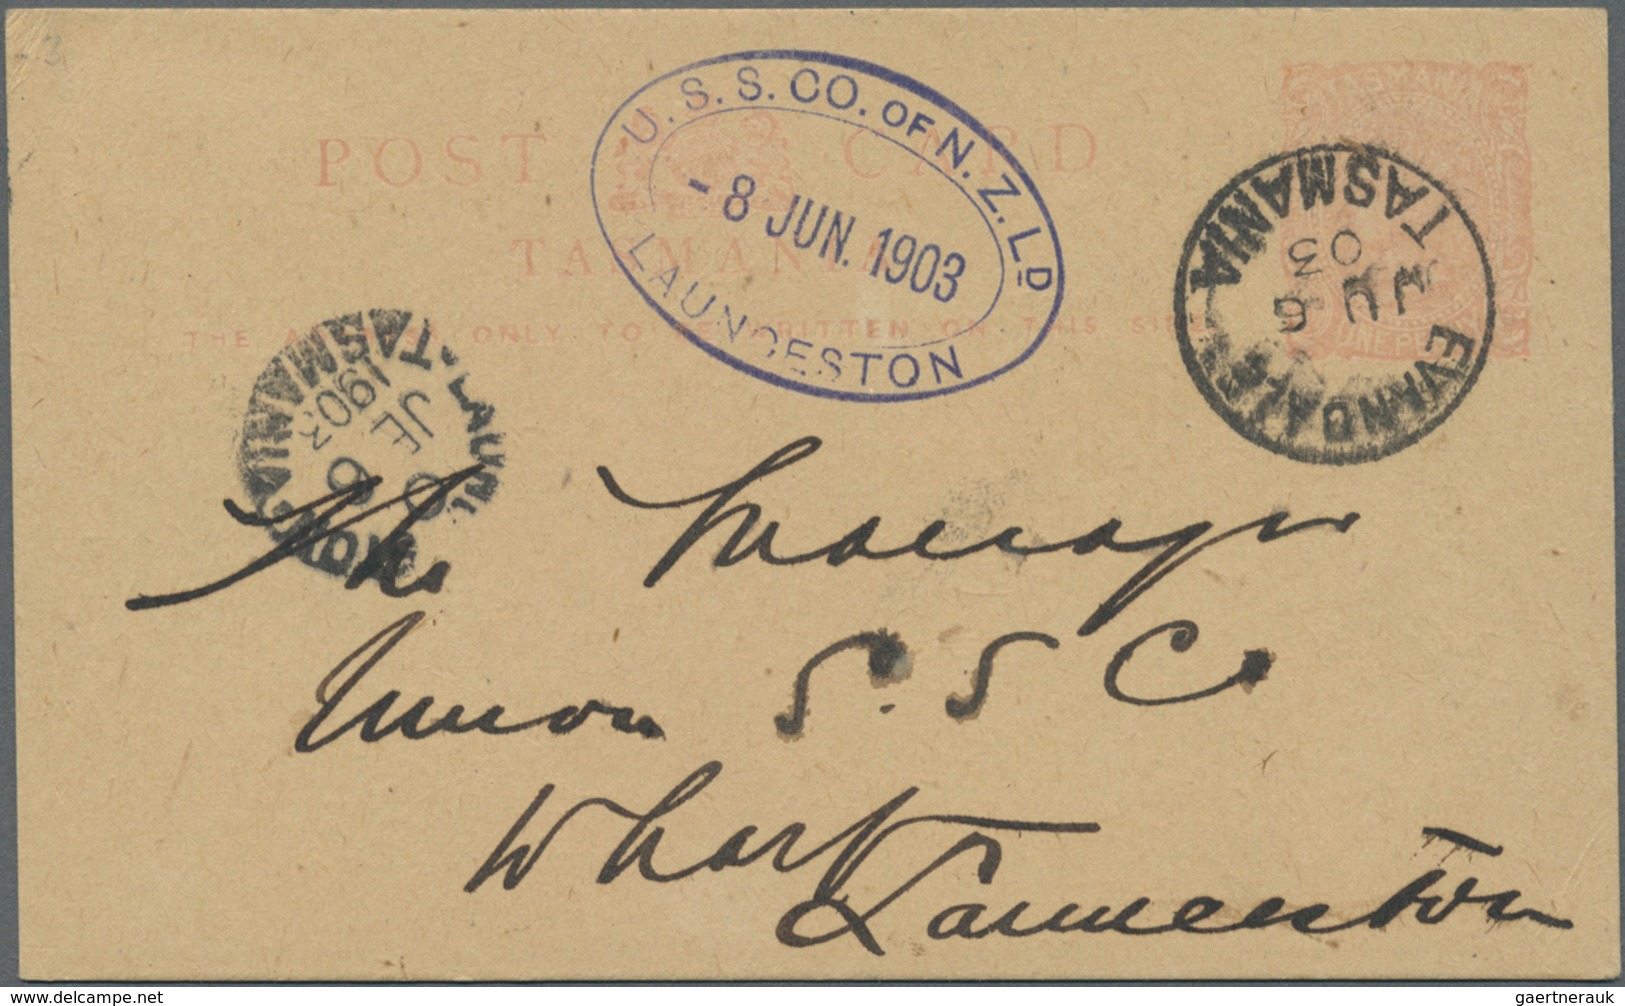 - 3.
U. S. S. CO. OF N. Z. LD
- 8 JUN. 1903
LAUNCESTON
POST CARD
TASMANIA
THE ADDRESS ONLY TO BE WRITTEN ON THIS SIDE
TASMANIA
ONE PENNY
EVANDALE
JU 6
03
TASMANIA
LAUN
6
JE 6
1903
TASMANIA
The Manager
Union S. S Co
Wharf
Launceston
delcampe.net
gaertnerauk